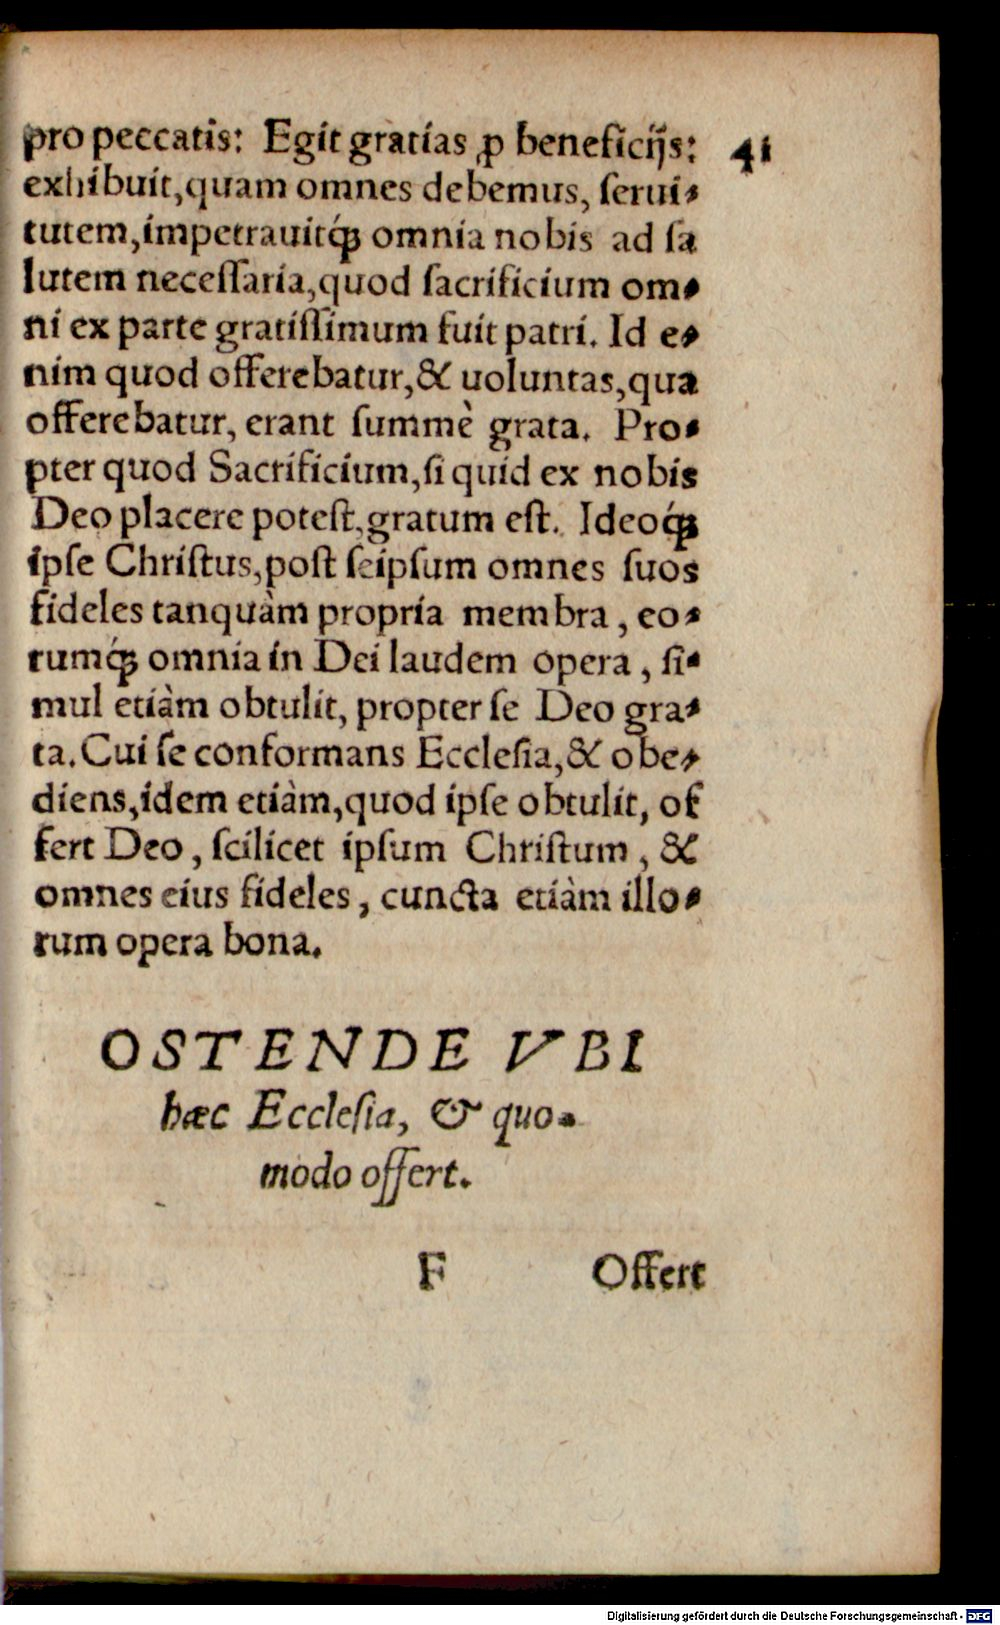 pro peccatis: Egit gratias ꝓ beneficijs: 41
exhibuit,quam omnes debemus, ſerui-
tutem,impetrauitq́; omnia nobis ad ſa
lutem neceſſaria,quod ſacrificium om-
ni ex parte gratiſſimum fuit patri. Id e-
nim quod offerebatur,& uoluntas,qua
offerebatur, erant ſummè grata. Pro-
pter quod Sacrificium,ſi quid ex nobis
Deo placere poteſt,gratum eſt. Ideoq́;
ipſe Chriſtus,poſt ſeipſum omnes ſuos
fideles tanquàm propria membra, eo-
rumq́; omnia in Dei laudem opera, ſi-
mul etiàm obtulit, propter ſe Deo gra-
ta.Cui ſe conformans Eccleſia,& obe-
diens,idem etiàm,quod ipſe obtulit, of
fert Deo, ſcilicet ipſum Chriſtum, &
omnes eius fideles, cuncta etiàm illo-
rum opera bona.
OSTENDE VBI
hæc Eccleſia, & quo-
modo offert.
F Offert
Digitalisierung gefördert durch die Deutsche Forschungsgemeinschaft - DFG